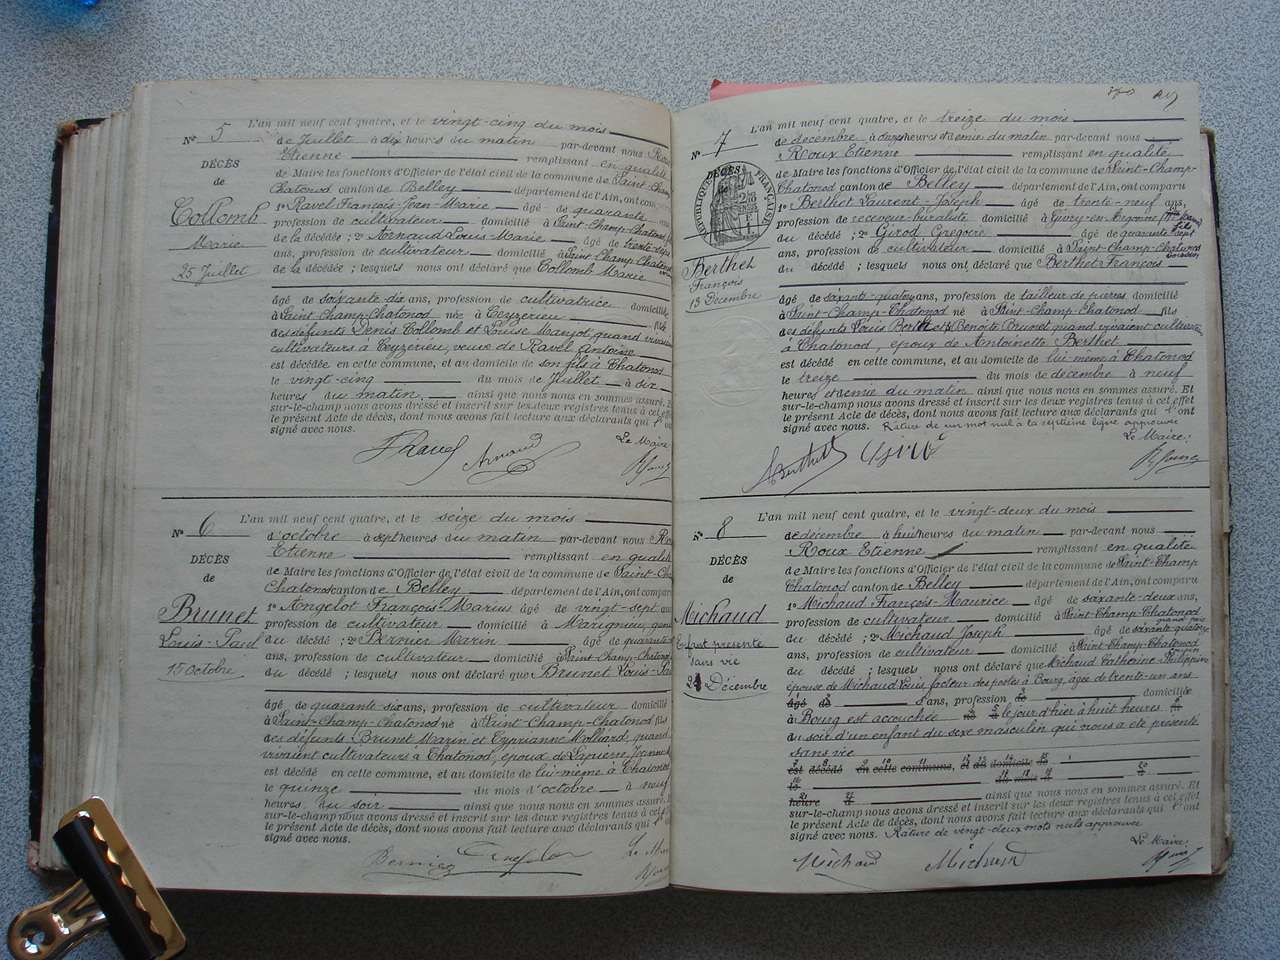 N° 5
DÉCÈS
de
Collomb
Marie
25 Juillet
L'an mil neuf cent quatre, et le vingt-cinq du mois
de Juillet à dix heures du matin par-devant nous
Etienne remplissant en qualité
de Maire les fonctions d'Officier de l'état civil de la commune de Saint-Champ
Chatonod canton de Belley département de l'Ain, ont comparu
1° Ravel François-Jean-Marie âgé de quarante
profession de cultivateur domicilié à Saint-Champ-Chatonod
de la décédée ; 2° Arnaud Louis Marie âgé de trente-sept
ans, profession de cultivateur domicilié à Saint-Champ Chatonod
de la décédée ; lesquels nous ont déclaré que Collomb Marie
âgé de soixante dix ans, profession de cultivatrice domiciliée
à Saint-Champ-Chatonod née à Ceyzérieu fille
des défunts Denis Collomb et Louise Manjot quand vivaient
cultivateurs à Ceyzérieu, veuve de Ravel Antoine
est décédée en cette commune, et au domicile de son fils à Chatonod
le vingt-cinq du mois de Juillet à dix
heures du matin, ainsi que nous nous en sommes assuré. Et
sur-le-champ nous avons dressé et inscrit sur les deux registres tenus à cet effet
le présent Acte de décès, dont nous avons fait lecture aux déclarants qui l'ont
signé avec nous.
Le Maire
Ravel Arnaud
N° 6
DÉCÈS
de
Brunet
Louis-Paul
15 Octobre
L'an mil neuf cent quatre, et le seize du mois
d'octobre à sept heures du matin par-devant nous
Etienne remplissant en qualité
de Maire les fonctions d'Officier de l'état civil de la commune de Saint-Ch
Chatonod canton de Belley département de l'Ain, ont comparu
1° Angelot François-Marius âgé de vingt-sept ans
profession de cultivateur domicilié à Marignieu,
du décédé ; 2° Marin âgé de quarante
ans, profession de cultivateur domicilié à Saint-Champ-Chatonod
du décédé ; lesquels nous ont déclaré que Brunet Louis-
âgé de quarante six ans, profession de cultivateur domicilié
à Saint-Champ-Chatonod né à Saint-Champ-Chatonod fils
des défunts Brunet Marin et Cyprianne Molliard quand
vivaient cultivateurs à Chatonod, époux de Lapierre
est décédé en cette commune, et au domicile de lui-même à Chatonod
le quinze du mois d'octobre à neuf
heures du soir ainsi que nous nous en sommes assuré.
sur-le-champ nous avons dressé et inscrit sur les deux registres tenus à cet
le présent Acte de décès, dont nous avons fait lecture aux déclarants qui l'
signé avec nous.
N° 7
DÉCÈS
de
RÉPUBLIQUE FRANÇAISE
Berthet
François
13 Décembre
L'an mil neuf cent quatre, et le treize du mois
de décembre à onze heures du matin par-devant nous
Roux Etienne remplissant en qualité
de Maire les fonctions d'Officier de l'état civil de la commune de Saint-Champ-
Chatonod canton de Belley département de l'Ain, ont comparu
1° Berthet Laurent-Joseph âgé de trente-neuf ans,
profession de receveur-buraliste domicilié à Givry-en-Argonne
fils
du décédé ; 2° Girod Grégoire âgé de quarante
ans, profession de cultivateur domicilié à Saint-Champ-Chatonod
du décédé ; lesquels nous ont déclaré que Berthet François
âgé de soixante-quatre ans, profession de tailleur de pierres domicilié
à Saint-Champ-Chatonod né à Saint-Champ-Chatonod fils
des défunts Louis Berthet & Benoîte Brunet quand vivaient
à Chatonod, époux de Antoinette Berthet
est décédé en cette commune, et au domicile de lui-même à Chatonod
le treize du mois de décembre à neuf
heures et demie du matin ainsi que nous nous en sommes assuré. Et
sur-le-champ nous avons dressé et inscrit sur les deux registres tenus à cet effet
le présent Acte de décès, dont nous avons fait lecture aux déclarants qui l'ont
signé avec nous. Rature de un mot nul à la septième ligne approuvée
Le Maire :
Berthet
N° 8
DÉCÈS
de
Michaud
Enfant présenté
sans vie
21 Décembre
L'an mil neuf cent quatre, et le vingt-deux du mois
de décembre à huit heures du matin par-devant nous
Roux Etienne remplissant en qualité
de Maire les fonctions d'Officier de l'état civil de la commune de Saint-Champ
Chatonod canton de Belley département de l'Ain, ont comparu
1° Michaud François-Maurice âgé de soixante-deux ans,
profession de cultivateur domicilié à Saint-Champ-Chatonod
du décédé ; 2° Michaud Joseph âgé de soixante-quatre
ans, profession de cultivateur domicilié à Saint-Champ-Chatonod
du décédé ; lesquels nous ont déclaré que Michaud Catherine-Philippine
épouse de Michaud Louis facteur des postes à Bourg, âgée de trente-un ans
âgé de ans, profession domiciliée
à Bourg est accouchée le jour d'hier à huit heures
du soir d'un enfant du sexe masculin qui nous a été présenté
sans vie
est décédé en cette commune, et au domicile
heure ainsi que nous nous en sommes assuré. Et
sur-le-champ nous avons dressé et inscrit sur les deux registres tenus à cet effet
le présent Acte de décès, dont nous avons fait lecture aux déclarants qui l'ont
signé avec nous. Rature de vingt-deux mots nuls approuvée
Le Maire
Michaud Michaud